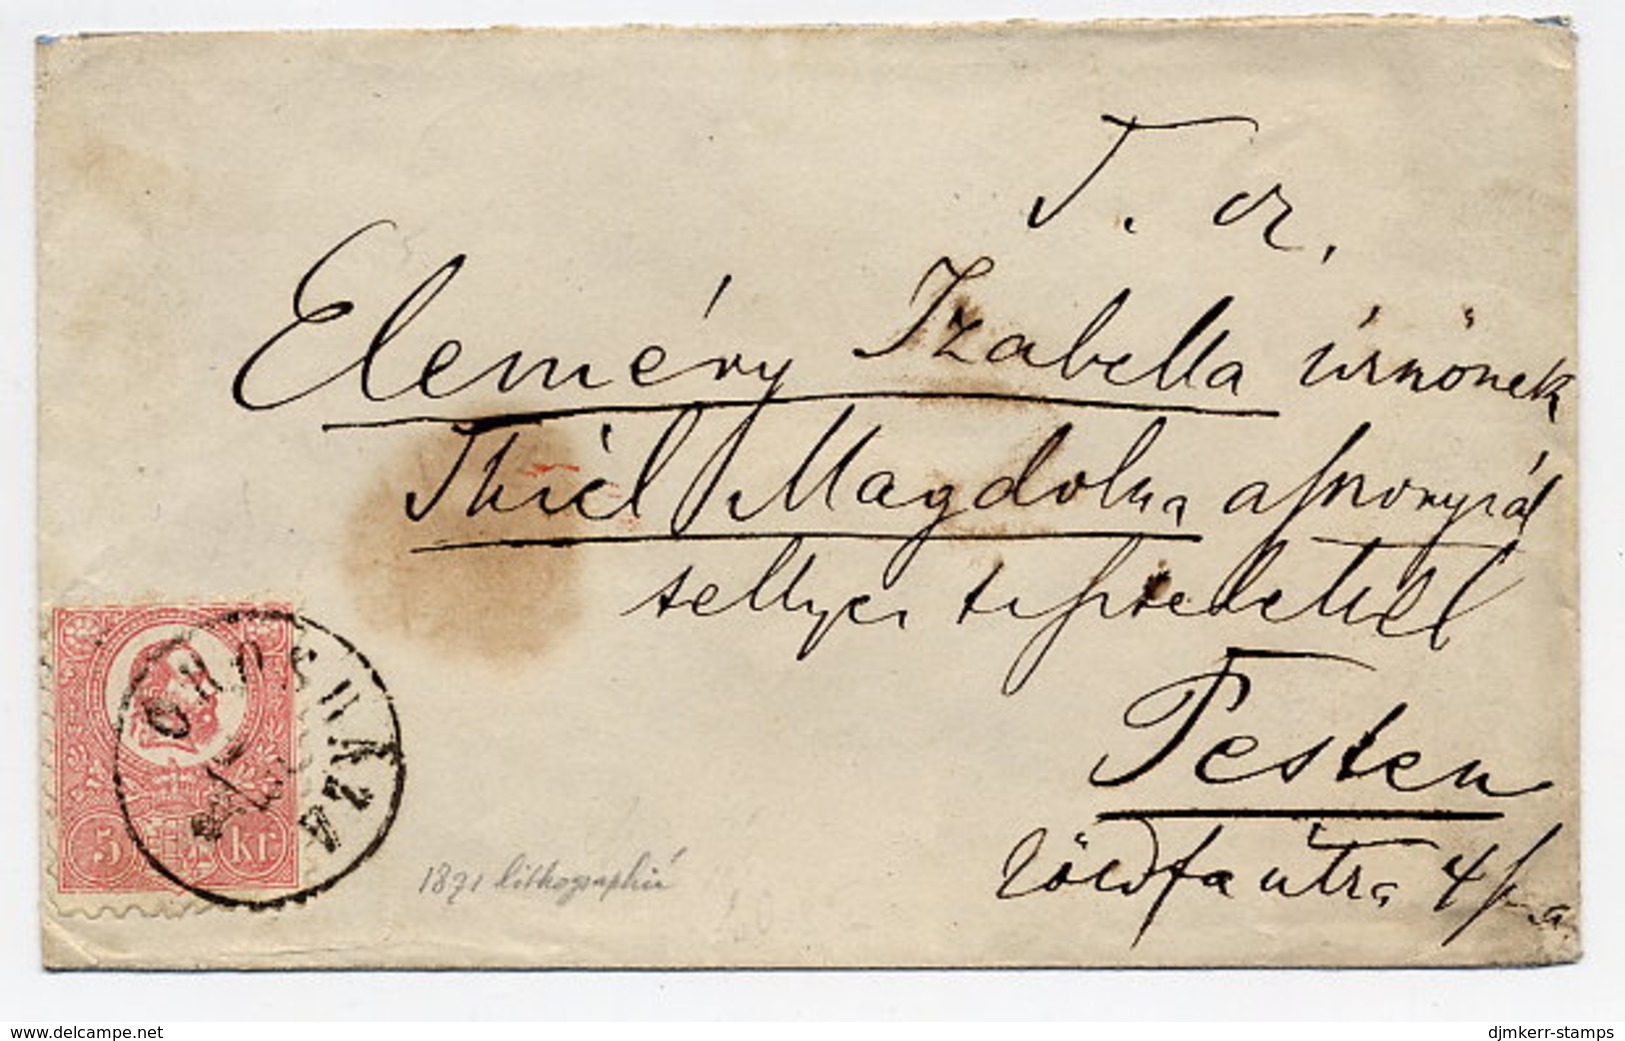 T. cz.
Elemény Izabella úrnőnek
Thiél Magdolna asszonynál
tisztelettel
Pesten
Zöldfa utza 4
OROSHÁZA
5 kr
1871 lithographiü
www.delcampe.net
djmkerr-stamps